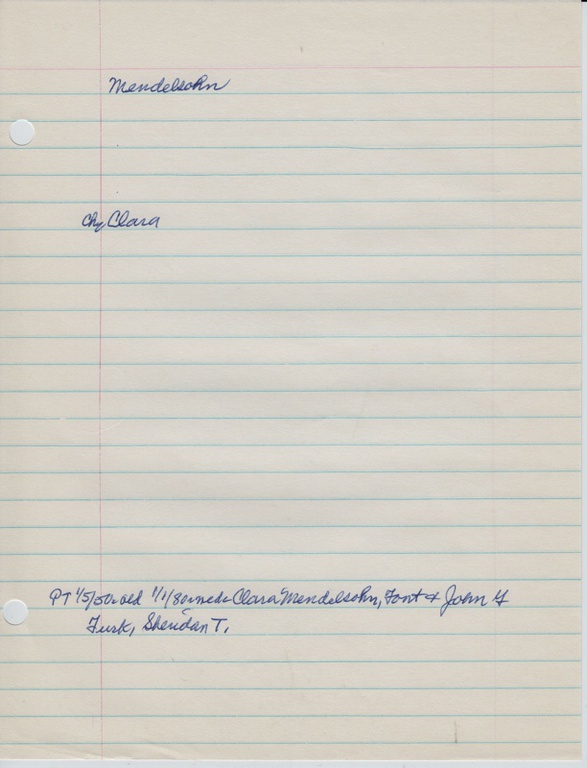 Mendelsohn
Ch, Clara
PT 1/5/50 - old 1/1/80 - made Clara Mendelsohn, Font & John G
Tusk, Sheridan T.